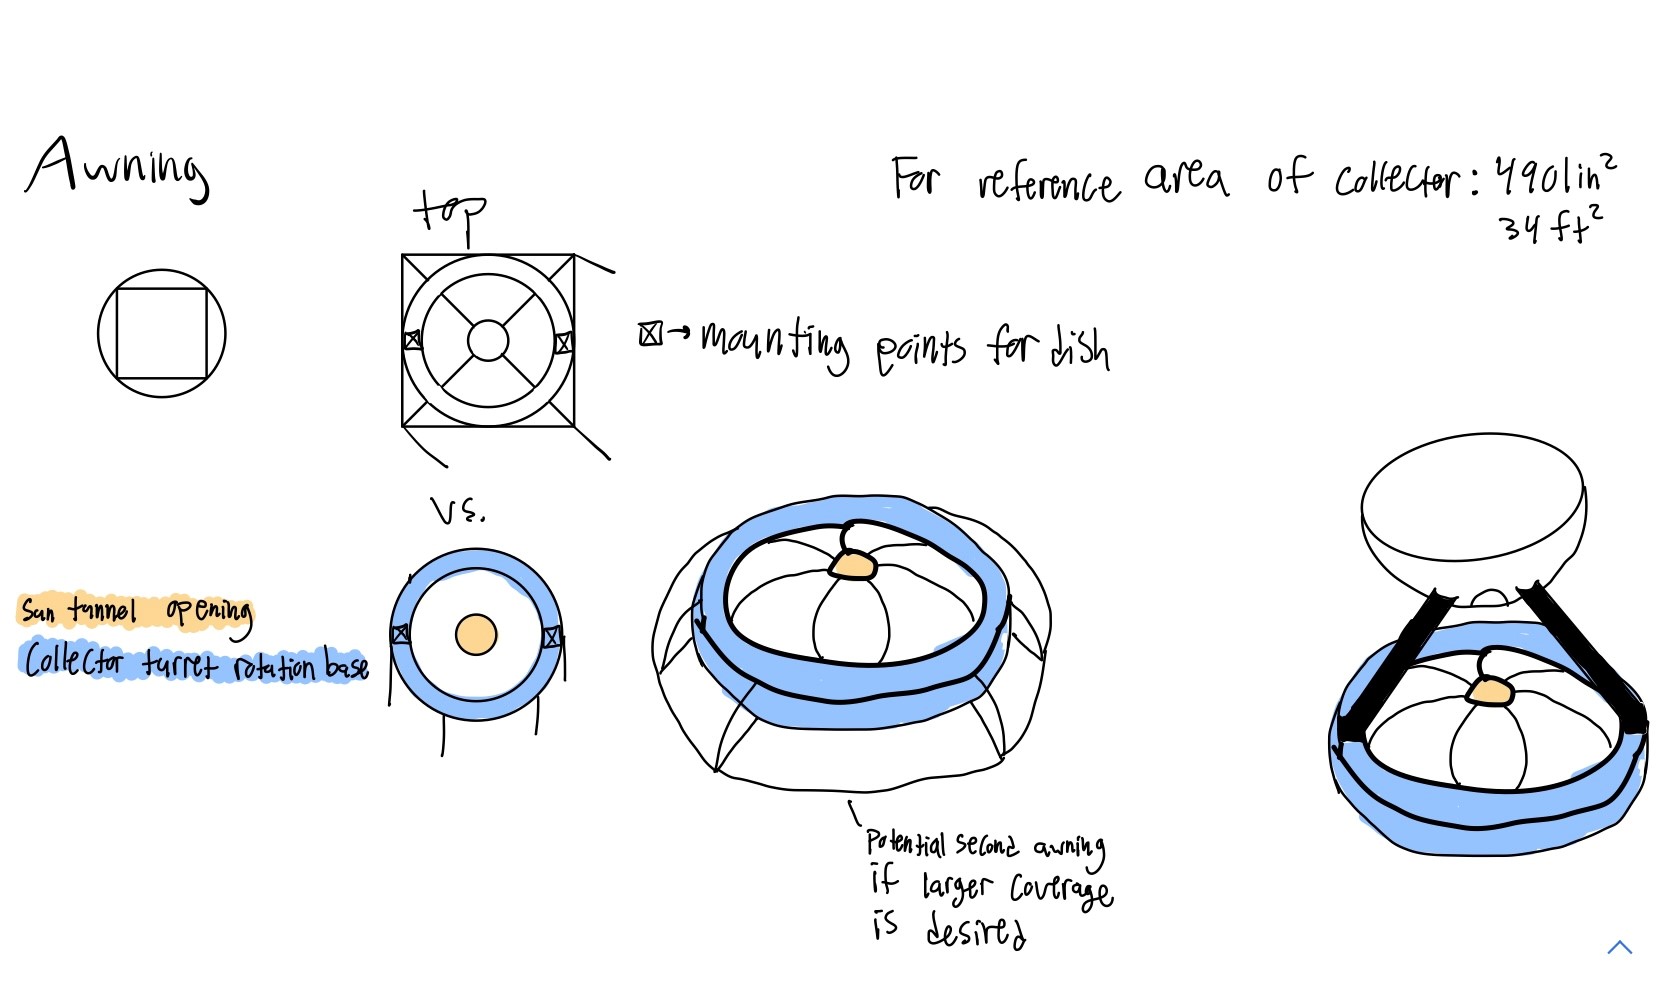 Awning
top
For reference area of collector: 4901in²
34 ft²
☒→ mounting points for dish
vs.
Sun tunnel opening
Collector turret rotation base
Potential second awning
if larger coverage
is desired